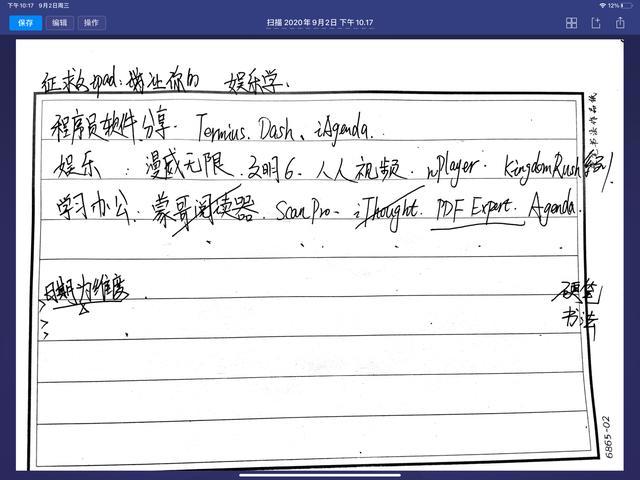 下午10:17 9月2日周三
12%
保存 编辑 操作
扫描 2020年9月2日 下午10.17
娱乐学.
程序员软件分享. Termius. Dash、iAgenda.
娱乐 : 漫威无限. 文明6. 人人视频. nPlayer. KingdomRush
学习办公. 蒙哥阅读器. ScanPro. iThought. PDF Expert. Agenda.
日期为维度.
硬笔
书法
书法作品纸
6865-02